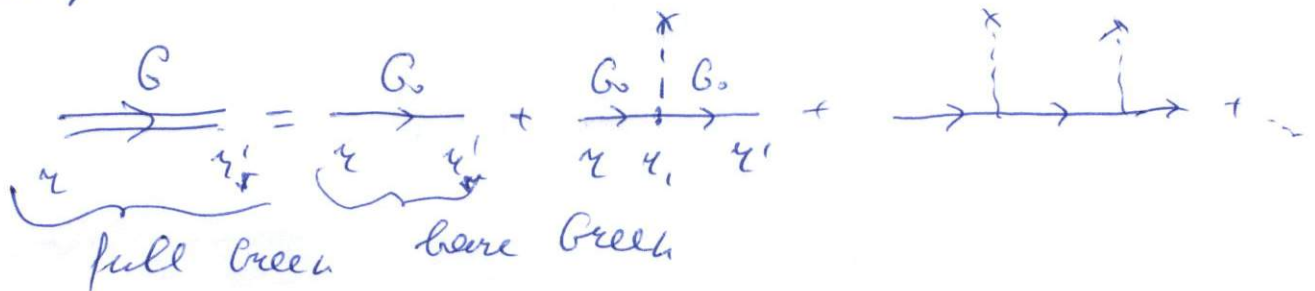 G = G₀ + G₀ G₀ + + ...
r r' r r' r r₁ r'
full Green bare Green